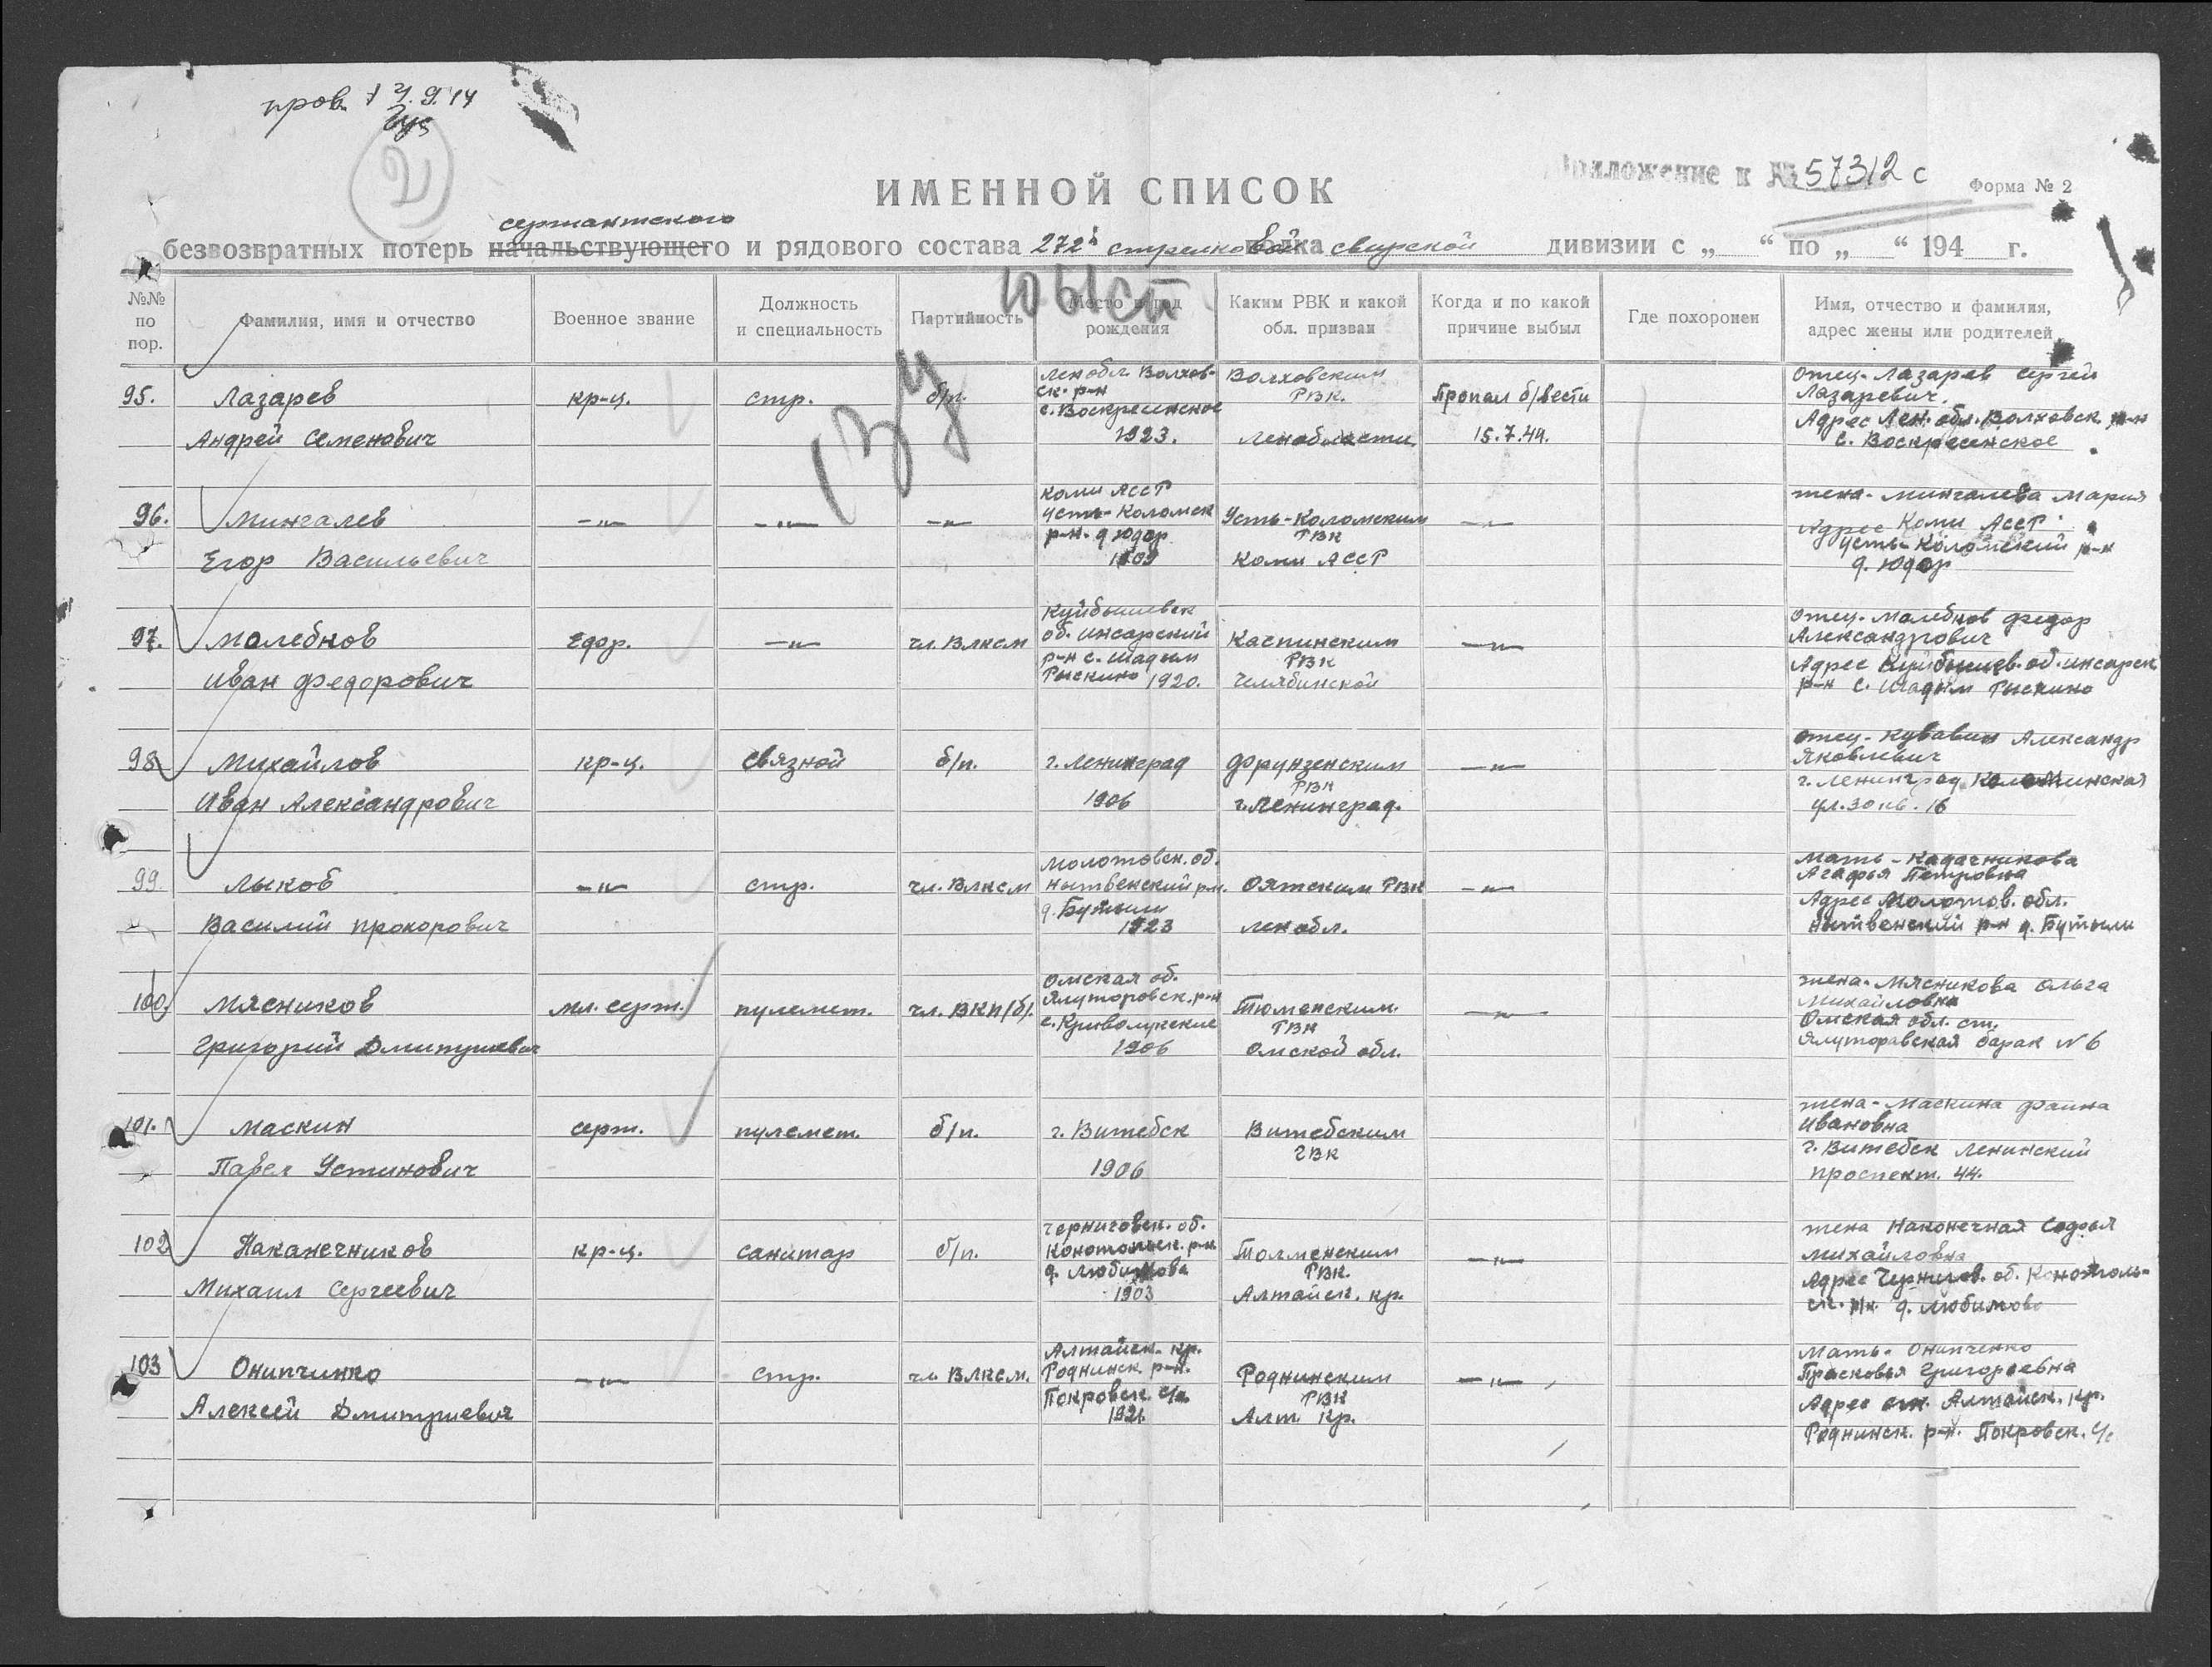 пров.
2
Приложение к № 57312 с
Форма № 2
ИМЕННОЙ СПИСОК
сержантского
безвозвратных потерь начальствующего и рядового состава 272й стрелковой полка свирской дивизии с „ “ по „ “ 194 г.
№№ по пор.
Фамилия, имя и отчество
Военное звание
Должность и специальность
Партийность
Место и год рождения
Каким РВК и какой обл. призван
Когда и по какой причине выбыл
Где похоронен
Имя, отчество и фамилия, адрес жены или родителей
95. Лазарев
Андрей Семенович
кр-ц.
стр.
б/п.
Лен обл. Волхов-
ск. р-н
с. Воскресенское
1923.
Волховским
РВК.
Ленобласти.
Пропал б/вести
15.7.44.
Отец-Лазарев Сергей
Лазаревич.
Адрес Лен. обл. Волховск. р-н
с. Воскресенское
96. Мингалев
Егор Васильевич
—„—
—„—
—„—
Коми АССР
Усть-Коломск
р-н. д Юдор
1909
Усть-Коломским
РВК
Коми АССР
—„—
жена-Мингалева Мария
Адрес Коми АССР
Усть-Коломский р-н
д. Юдор
97. Молебнов
Иван Федорович
Ефр.
—„—
чл. ВЛКСМ
Куйбышевск
об. Инсарский
р-н с. Шадым
Рыскино 1920.
Каспинским
РВК
Челябинской
—„—
Отец-Молебнов Федор
Александрович
Адрес Куйбышев. об. Инсарск
р-н с. Шадым Рыскино
98 Михайлов
Иван Александрович
кр-ц.
связной
б/п.
г. Ленинград
1906
Фрунзенским
РВК
г. Ленинград.
—„—
отец-Кувавин Александр
Яковлевич
г. Ленинград Коломинская
ул. 30 кв. 16
99. Лыков
Василий Прохорович
—„—
стр.
чл. ВЛКСМ
Молотовск. об.
Нытвенский р-н.
д. Бутыли
1923
Оятским РВК
Лен обл.
—„—
Мать-Кадачникова
Агафья Петровна
Адрес Молотов. обл.
Нытвенский р-н д. Бутыли
100. Мясников
Григорий Дмитриевич
мл. серж.
пулемет.
чл. ВКП/б/.
Омская об.
Ялуторовск. р-н
с. Криволукские
1906
Тюменским.
РВК
Омской обл.
—„—
жена-Мясникова Ольга
Михайловна
Омская обл. ст.
Ялуторавская барак №6
101. Маскин
Павел Устинович
серж.
пулемет.
б/п.
г. Витебск
1906
Витебским
ГВК
жена-Маскина Фаина
Ивановна
г. Витебск Ленинский
проспект. 44.
102 Наканечников
Михаил Сергеевич
кр-ц.
санитар
б/п.
Черниговск. об.
Конотопск. р-н
д. Любимова
1903
Толменским
РВК.
Алтайск. кр.
—„—
жена Наконечная Софья
Михайловна
Адрес Чернигов. об. Конотоп-
ск. р/н. д. Любимово
103 Онипчинко
Алексей Дмитриевич
—„—
стр.
чл. ВЛКСМ.
Алтайск. кр.
Роднинск р-н.
Покровск. с/с
1921
Роднинским
РВК
Алт. кр.
—„—
Мать-Онипченко
Прасковья Григорьевна
Адрес ст. Алтайск. кр.
Роднинск. р-н. Покровск. с/с